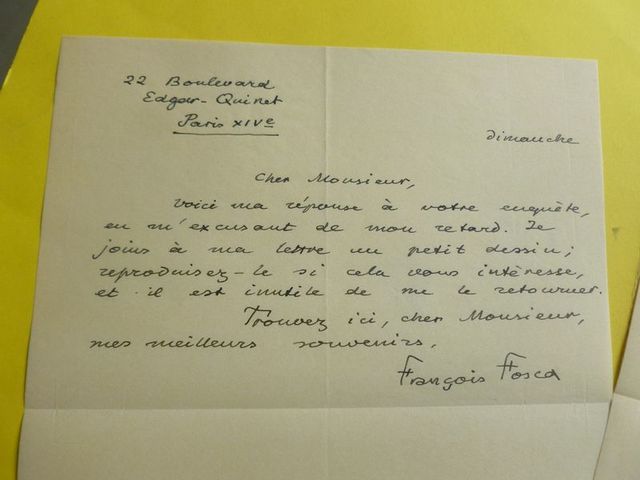 22 Boulevard
Edgar-Quinet
Paris XIVe
dimanche
Cher Monsieur,
voici ma réponse à votre enquête,
en m'excusant de mon retard. Je
joins à ma lettre un petit dessin;
reproduisez-le si cela vous intéresse,
et il est inutile de me le retourner.
Trouvez ici, cher Monsieur,
mes meilleurs souvenirs,
François Fosca